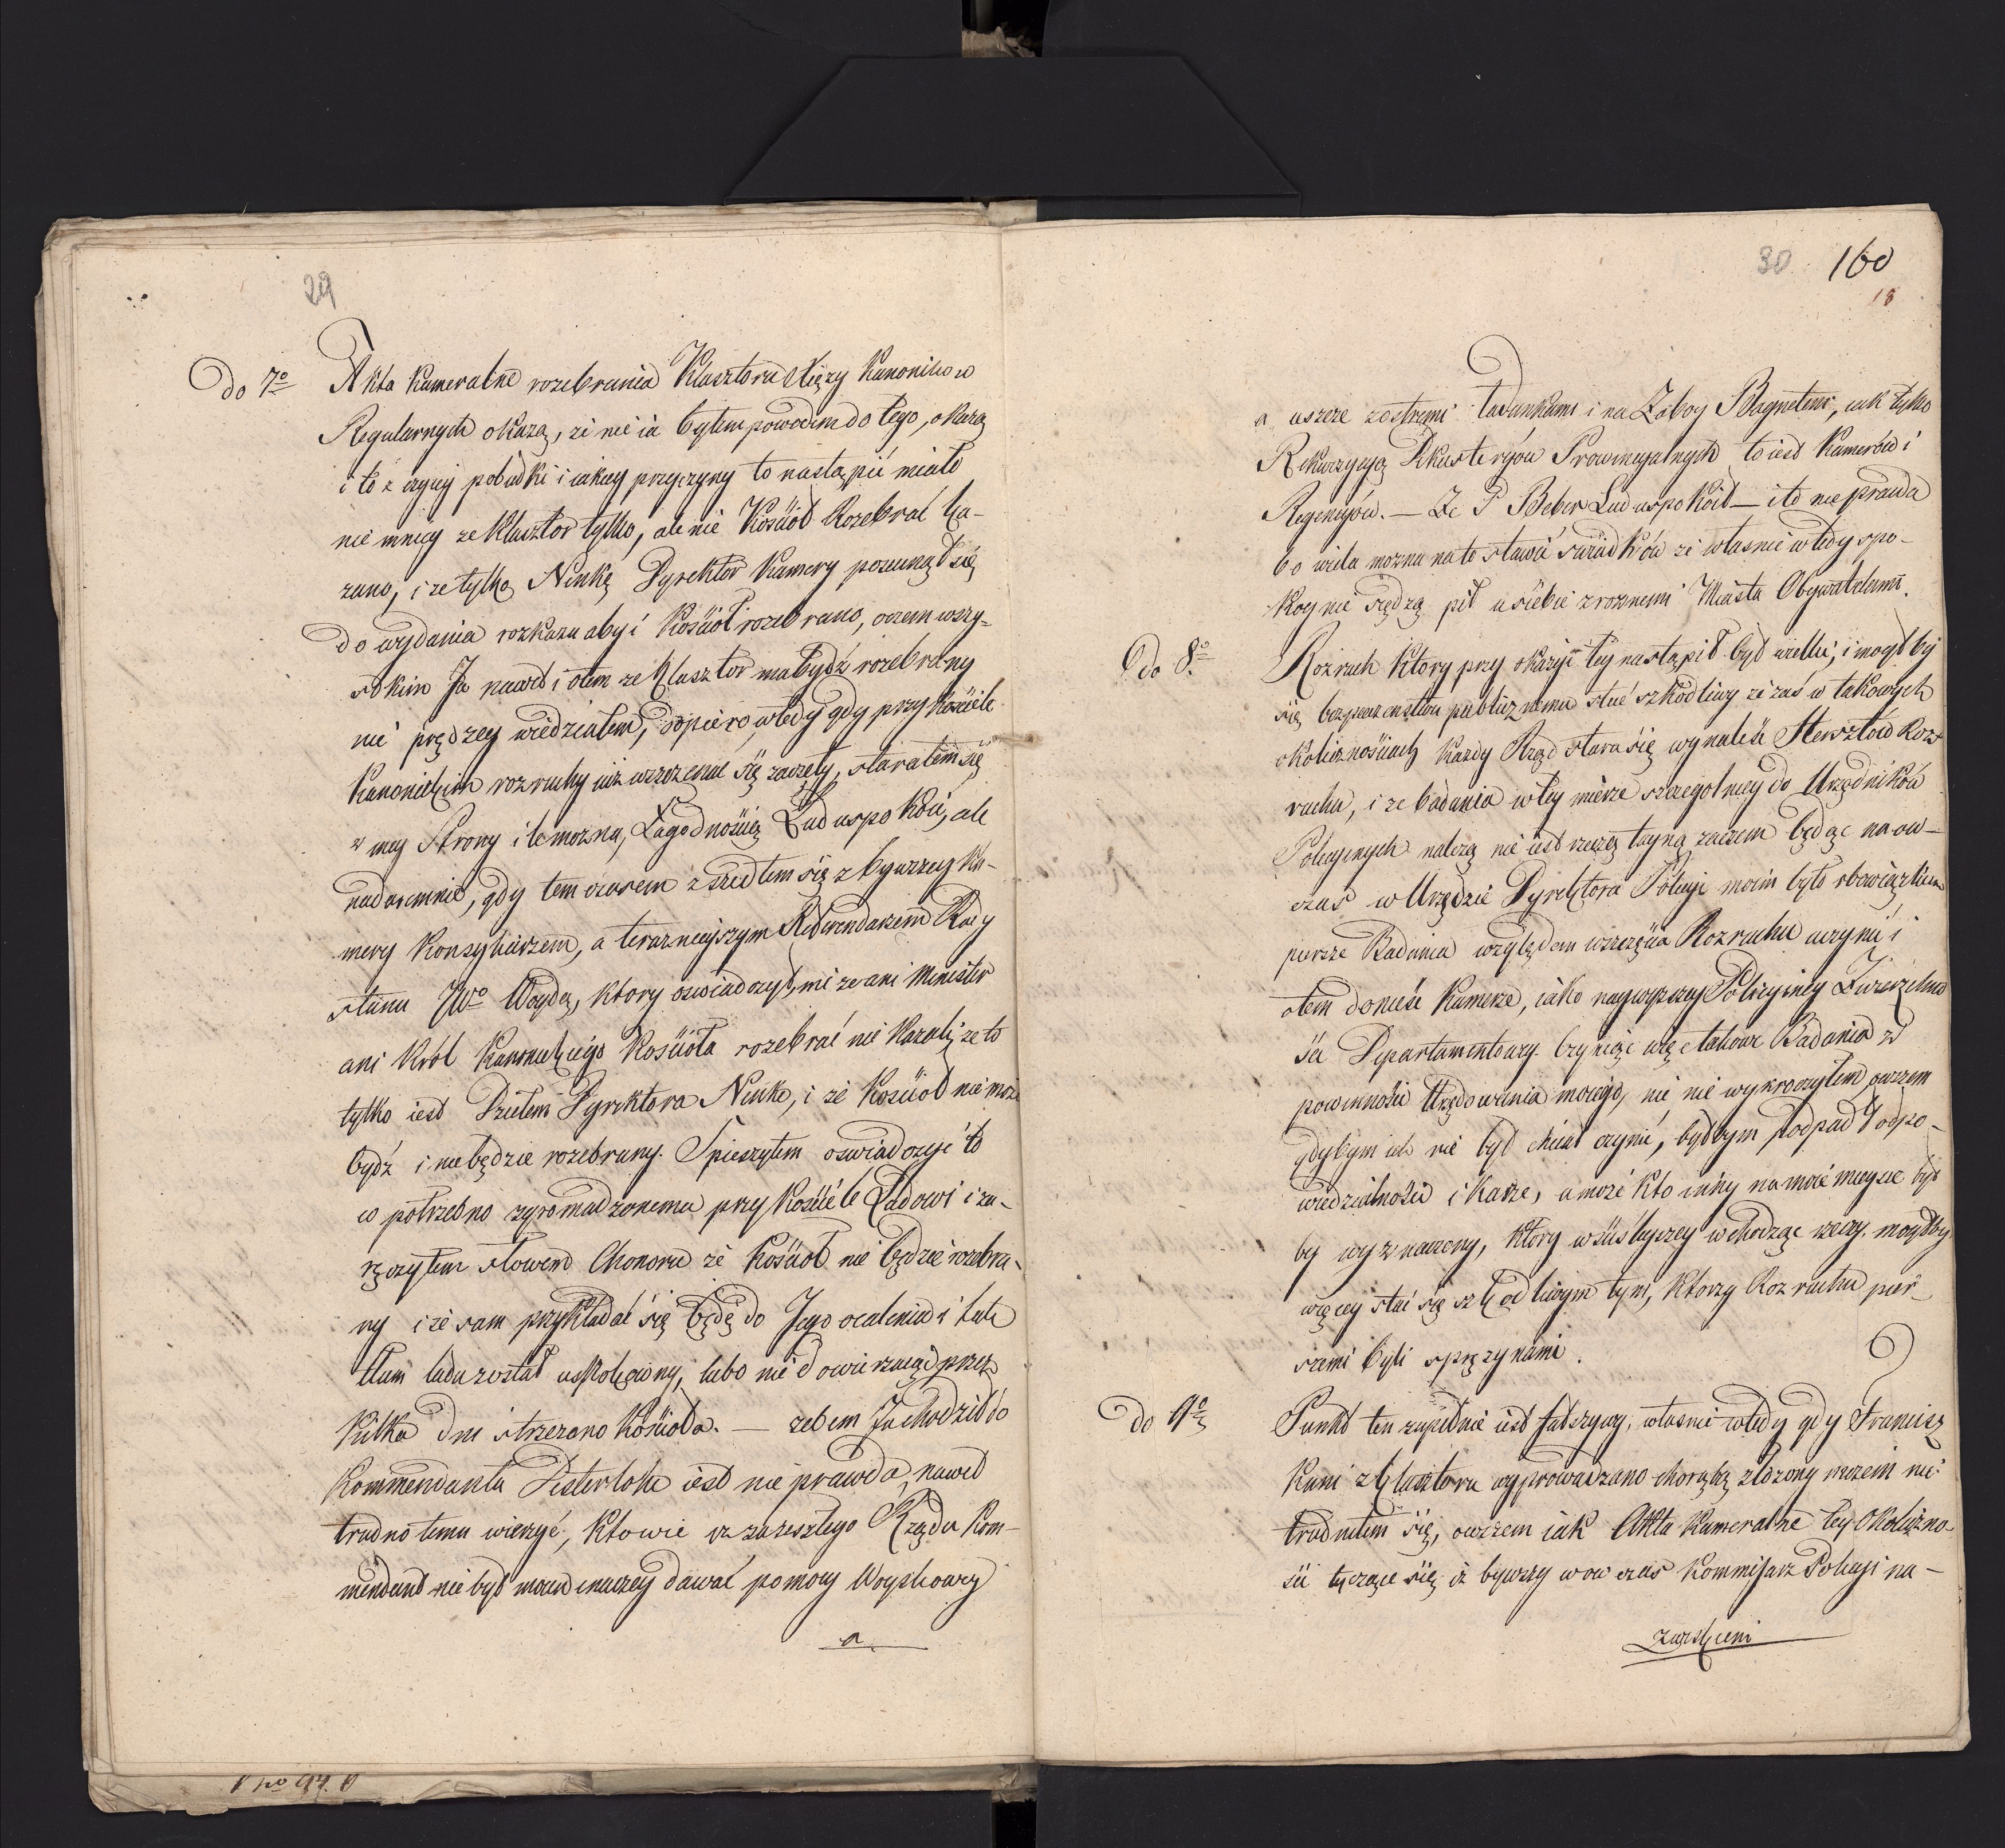 29
do 7o Akta Kameralne rozebrania Klasztoru Xięzy Kanonikow
Regularnych okazą, ze nie ia bytem powodem do tego, okazą
i to z czyiey pobudki i iakiey przyczyny to nastąpić miało
nie mniey ze Klasztor tylko, ale nie Kosciół Rozebrać ka-
zano, i ze tylko Ninkę Dyrektor Kamery posunął się
do wydania rozkazu aby i Kosciół rozebrano, oczem wszy-
stkim Ja nawet i otem ze Klasztor ma bydź rozebrany
nie prędzey wiedziałem, dopiero wtedy gdy przy Kosciele
Kanonickim rozruchy iuz wszczenać się zaczęły, starałem się
z mey Strony ile mozna, Łagodnoscią Lud uspokoić, ale
nadaremnie, gdy tem czasem zszedłem się z bywszey Ka-
mery Konsyliarzem, a terazneyszym Referendarzem Rady
stanu JWo Woydą, ktory oswiadczył mi ze ani Minister
ani Król Kanonickiego Kosciola rozebrać nie kazali, ze to
tylko iest Dziełem Dyrektora Ninke, i ze Kosciół nie moze
bydź i nie będzie rozebrany. Spieszyłem oswiadczyć to
co potrzebno zgromadzonemu przy Kosciele Ludowi i za-
ręczyłem słowem Chonoru ze Kosciół nie będzie rozebra-
ny i ze sam przykładać się będę do Jego ocalenia i tak
tłum ludu został uspokoiony, lubo nie dowierzaiąc przez
Kilka dni strzezono Kosciola. — zebem Ja chodził do
Kommendanta Pisterloke iest nie prawda, nawet
trudno temu wierzyć, kto wie iz za zeszłego Rządu Kom-
mendant nie był mocen inaczey dawać pomocy Woyskowey
a
30 160
18
a uszcze zostremi ładunkami i na Zaboy Bagnetem, iak tylko
Rekwizycyą Dikasteryów Prowincyalnych to iest Kamerów i
Regencyów. — Ze P Beber Lud uspokoił — i to nie prawda
bo wielu mozna na to stawić swiadków ze własnie wtedy spo-
koynie siędzą pił u siebie z roznemi Miasta Obywatelami.
do 8o Rozruch ktory przy okazyi tey nastąpił był wielki, i mogł by
się bezpieczenstwu publicznemu stać szkodliwy ze zas w takowych
okolicznosciach kazdy Rząd stara się wynaleśc Hersztów Roz-
ruchu, i ze badania wtey mierze szczegolniey do Urzędników
Policyinych nalezą nie iest rzeczą tayną zaczem będąc na ow-
czas w Urzędzie Dyrektora Policyi moim było obowiązkiem
piersze Badania względem wszczęcia Rozruchu uczynić i
otem donieść Kamerze, iako naywyzszey Policyiney Zwierzchno
sci Departamentowey. Czyniąc więc takowe Badania z
powinności Urzędowania moiego, nie nie wykroczyłem owszem
gdybym ich nie był chciał czynić, byłbym podpadł odpo-
wiedzialności i Karze, a moze kto inny na moie mieysce był
by wyznaczony, ktory w sciśleyszey wchodząc rzeczy mogłby
więcey stać się szkodliwym tym, ktorzy Rozruchu pier-
szemi byli sprzęzynami.
do 9o Punkt ten zupełnie iest fałszywy, własnie wtedy gdy Francisz
kani z Klasztoru wyprowadzano chorobą złozony niczem nie
trudniłem się, owszem iak Akta Kameralne tey Okoliczno-
sci tyczące się iz bywszy wow czas Kommisarz Policyi na-